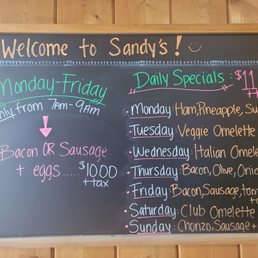 Welcome to Sandy's!
Monday-Friday
only from 7am-9am
Bacon OR Sausage
+ eggs..... $10.00
+tax
Daily Specials: $11
Monday: Ham, Pineapple,
Tuesday: Veggie Omelette
Wednesday: Italian
Thursday: Bacon, Olive,
Friday: Bacon, Sausage,
Saturday: Club Omelette
Sunday: Chorizo, Sausage +